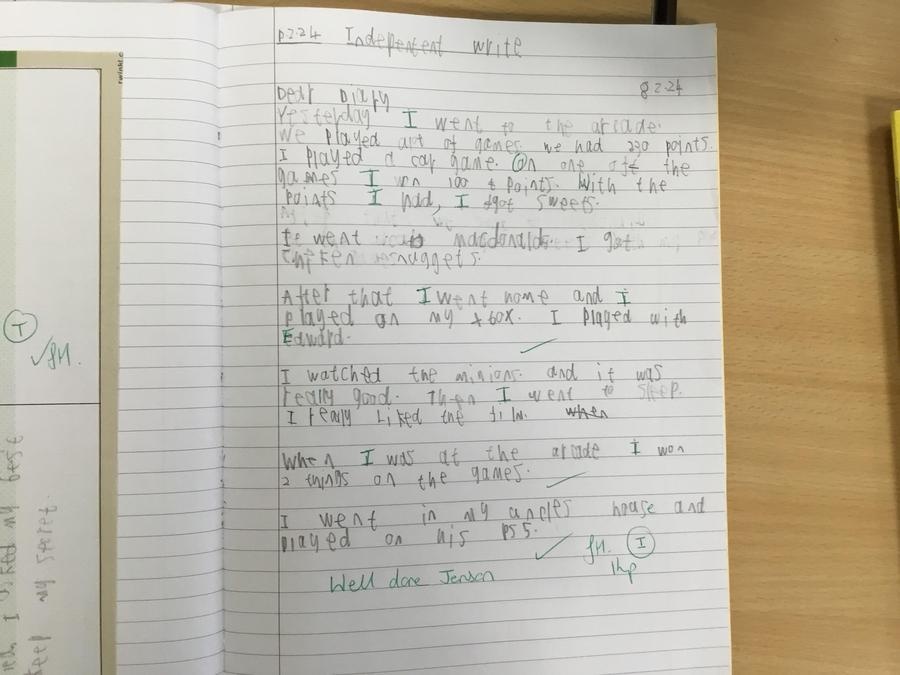 twinkl.c
T
✓ JH.
I my best
my secret.
p2.24 Indepentent write
8 2.24
Dear Diary
Yesterday I went to the arcade.
We played alt of games. we had 230 points.
I played a car game. On one off the
games I won 100 points. With the
points I had, I got sweets.
went macdonalds. I got
chiken nuggets.
After that I went home and I
played on my xbox. I played with
Edward.
I watched the minions. and it was
really good. Then I went to sleep.
I really liked the film. when
When I was at the arcade I won
2 things on the games.
I went in my uncles house and
played on his ps5.
JH. I
1hp
Well done Jenson